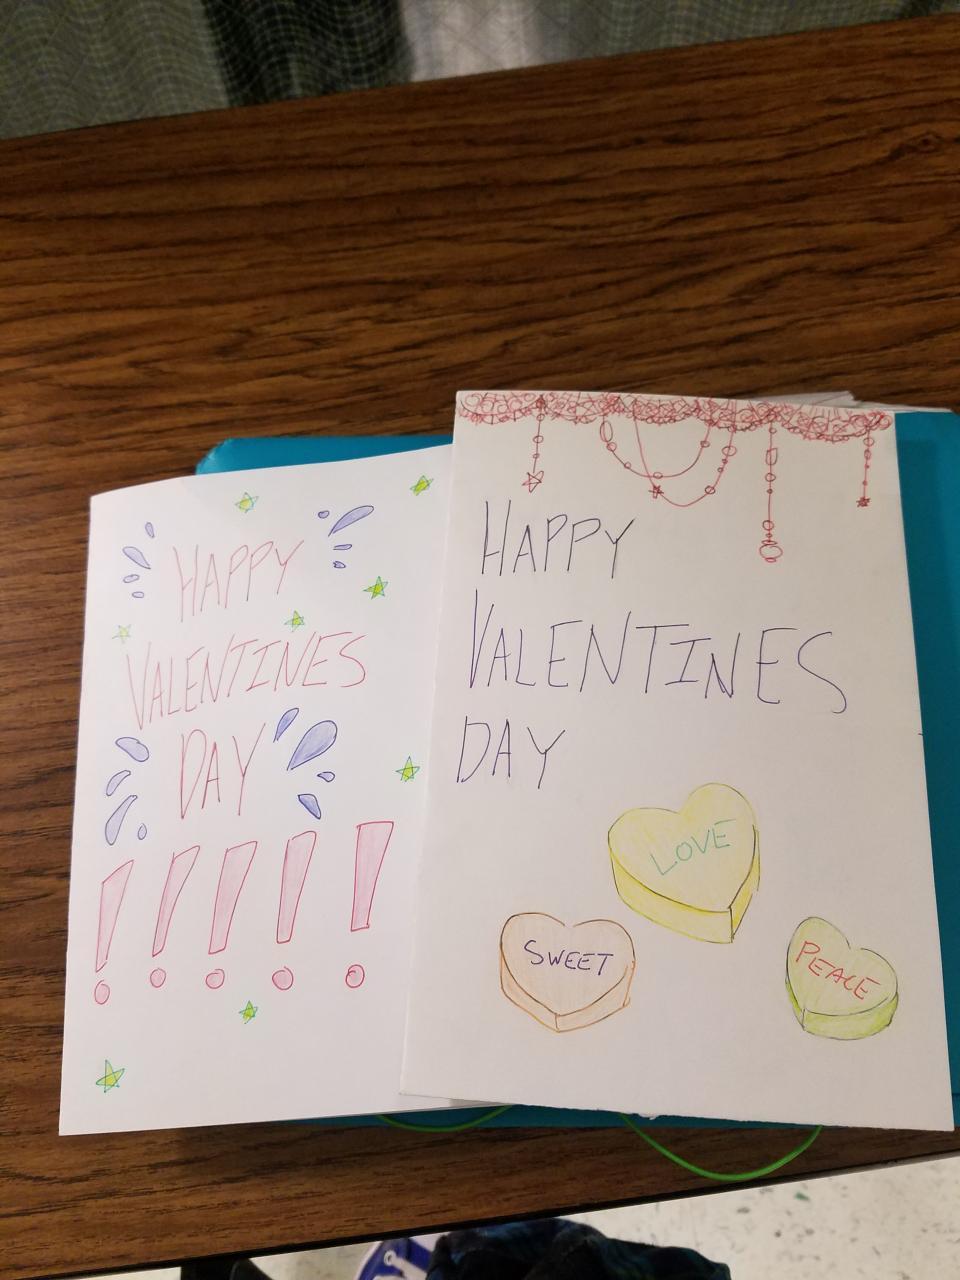 HAPPY
VALENTINES
DAY
!!!!!
HAPPY
VALENTINES
DAY
LOVE
SWEET
PEACE